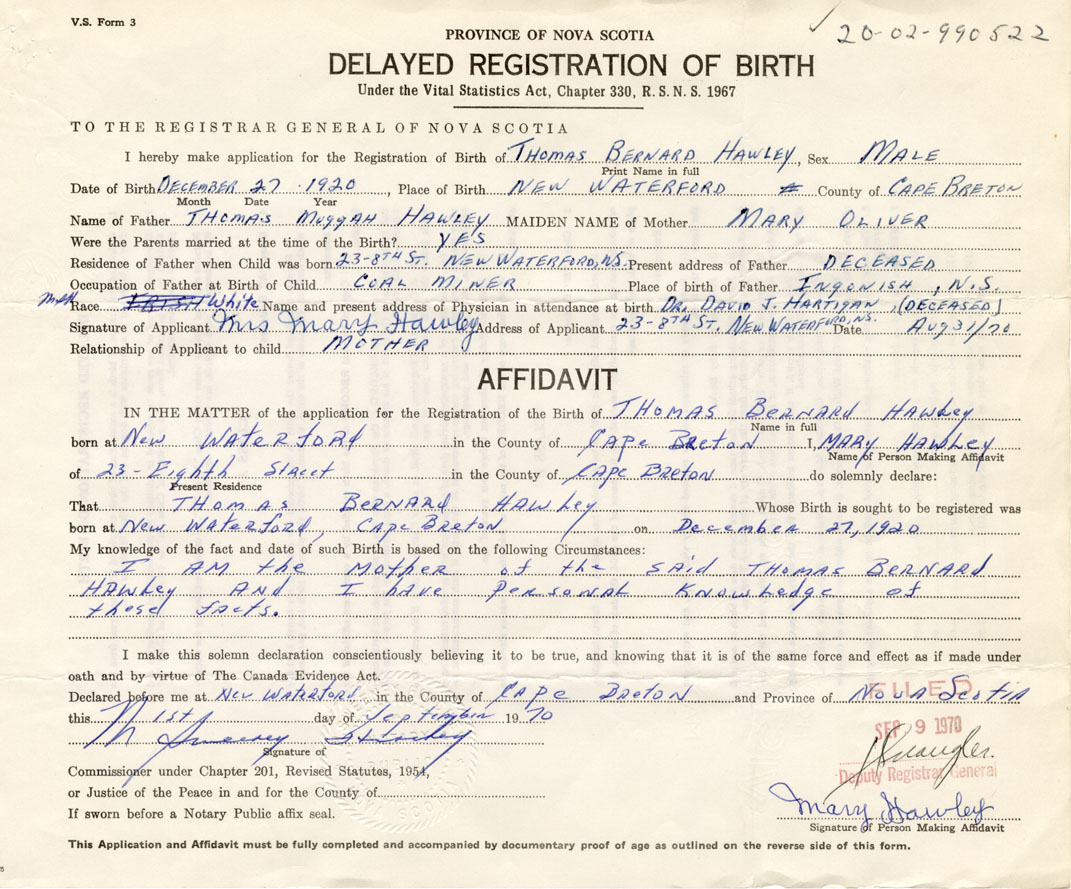 V.S. Form 3
20-02-990522
PROVINCE OF NOVA SCOTIA
DELAYED REGISTRATION OF BIRTH
Under the Vital Statistics Act, Chapter 330, R. S. N. S. 1967
TO THE REGISTRAR GENERAL OF NOVA SCOTIA
I hereby make application for the Registration of Birth of THOMAS BERNARD HAWLEY, Sex MALE
Print Name in full
Date of Birth DECEMBER 27 1920, Place of Birth NEW WATERFORD County of CAPE BRETON
Month Date Year
Name of Father THOMAS MUGGAH HAWLEY MAIDEN NAME of Mother MARY OLIVER
Were the Parents married at the time of the Birth? YES
Residence of Father when Child was born 23-8TH ST. NEW WATERFORD, N.S. Present address of Father DECEASED
Occupation of Father at Birth of Child COAL MINER Place of birth of Father INGONISH, N.S.
Race IRISH White Name and present address of Physician in attendance at birth DR. DAVID J. HARTIGAN, (DECEASED)
Signature of Applicant Mrs Mary Hawley Address of Applicant 23-8TH ST. NEW WATERFORD, N.S. Date AUG 31/70
Relationship of Applicant to child MOTHER
AFFIDAVIT
IN THE MATTER of the application for the Registration of the Birth of THOMAS BERNARD HAWLEY
Name in full
born at New WATERFORD in the County of CAPE BRETON I, MARY HAWLEY
Name of Person Making Affidavit
of 23-Eighth Street in the County of CAPE BRETON do solemnly declare:
Present Residence
That THOMAS BERNARD HAWLEY Whose Birth is sought to be registered was
born at New WATERFORD, CAPE BRETON on December 27, 1920
My knowledge of the fact and date of such Birth is based on the following Circumstances:
I AM the MOTHER of the SAID THOMAS BERNARD
HAWLEY AND I have PERSONAL KNOWLEDGE of
these facts.
I make this solemn declaration conscientiously believing it to be true, and knowing that it is of the same force and effect as if made under
oath and by virtue of The Canada Evidence Act.
Declared before me at New WATERFORD in the County of CAPE BRETON and Province of NOVA SCOTIA
FILED
this 1st day of September 1970
SEP 9 1970
Signature of
Deputy Registrar General
Commissioner under Chapter 201, Revised Statutes, 1954,
or Justice of the Peace in and for the County of
Mary Hawley
If sworn before a Notary Public affix seal.
Signature of Person Making Affidavit
This Application and Affidavit must be fully completed and accompanied by documentary proof of age as outlined on the reverse side of this form.